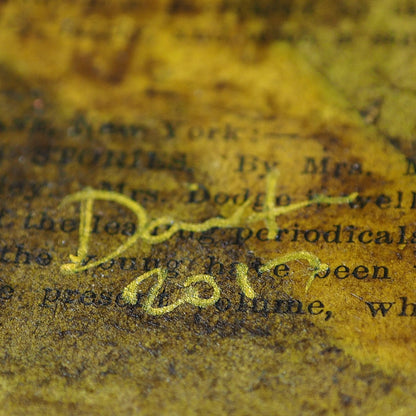 New York:—
STORIES. By Mrs.
Mrs. Dodge is well
the leading periodicals
the young have been
present volume, wh
Dart
2017